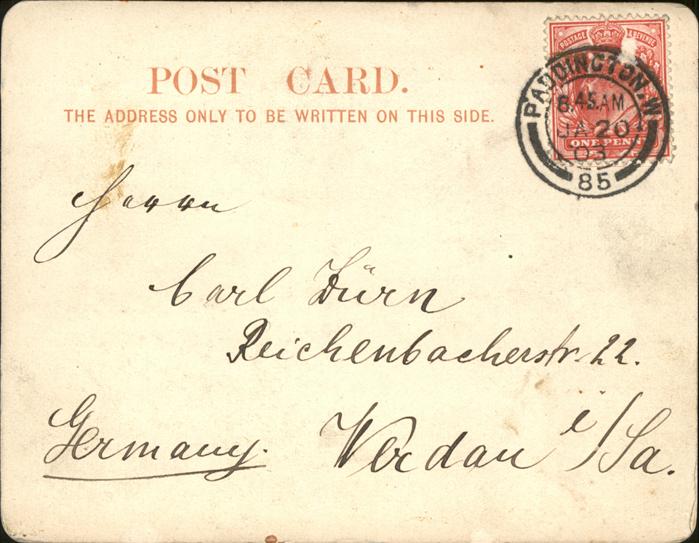 POSTAGE & REVENUE
POST CARD.
THE ADDRESS ONLY TO BE WRITTEN ON THIS SIDE.
PADDINGTON.W.
8.45.AM
JA 20
03
85
ONE PENNY
Herrn
Carl Dürn
Reichenbacherstr. 22.
Germany. Werdau i/Sa.